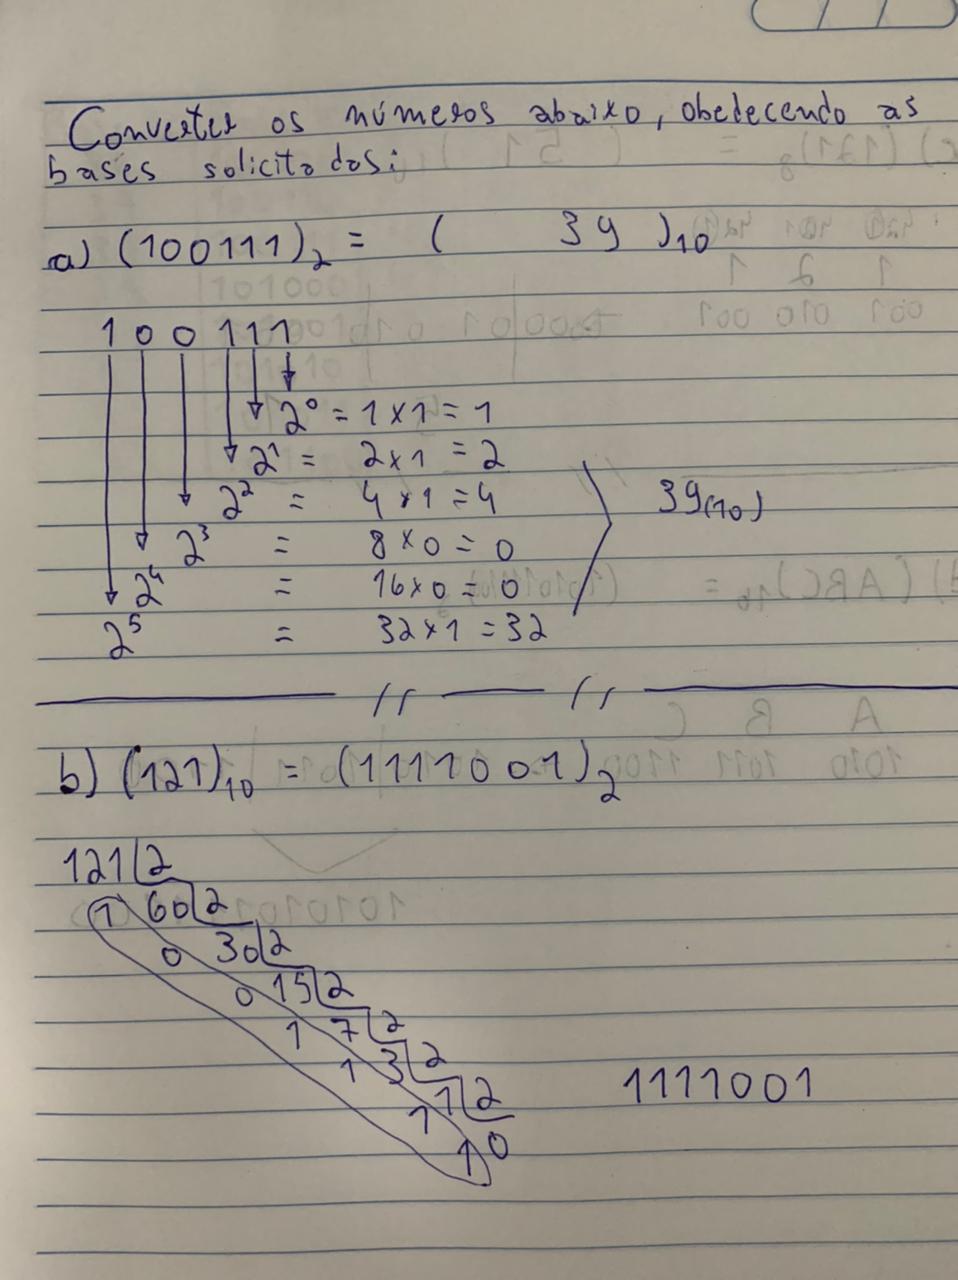 Converter os números abaixo, obedecendo as
bases solicitadas:
a) (100111)₂ = ( 39 )₁₀
1 0 0 1 1 1
2⁰ = 1 x 1 = 1
2¹ = 2 x 1 = 2
2² = 4 x 1 = 4
39(10)
2³ = 8 x 0 = 0
2⁴ = 16 x 0 = 0
2⁵ = 32 x 1 = 32
// //
b) (121)₁₀ = (1111001)₂
121 2
1 60 2
0 30 2
0 15 2
1 7 2
1 3 2
1 1 2
1 0
1111001